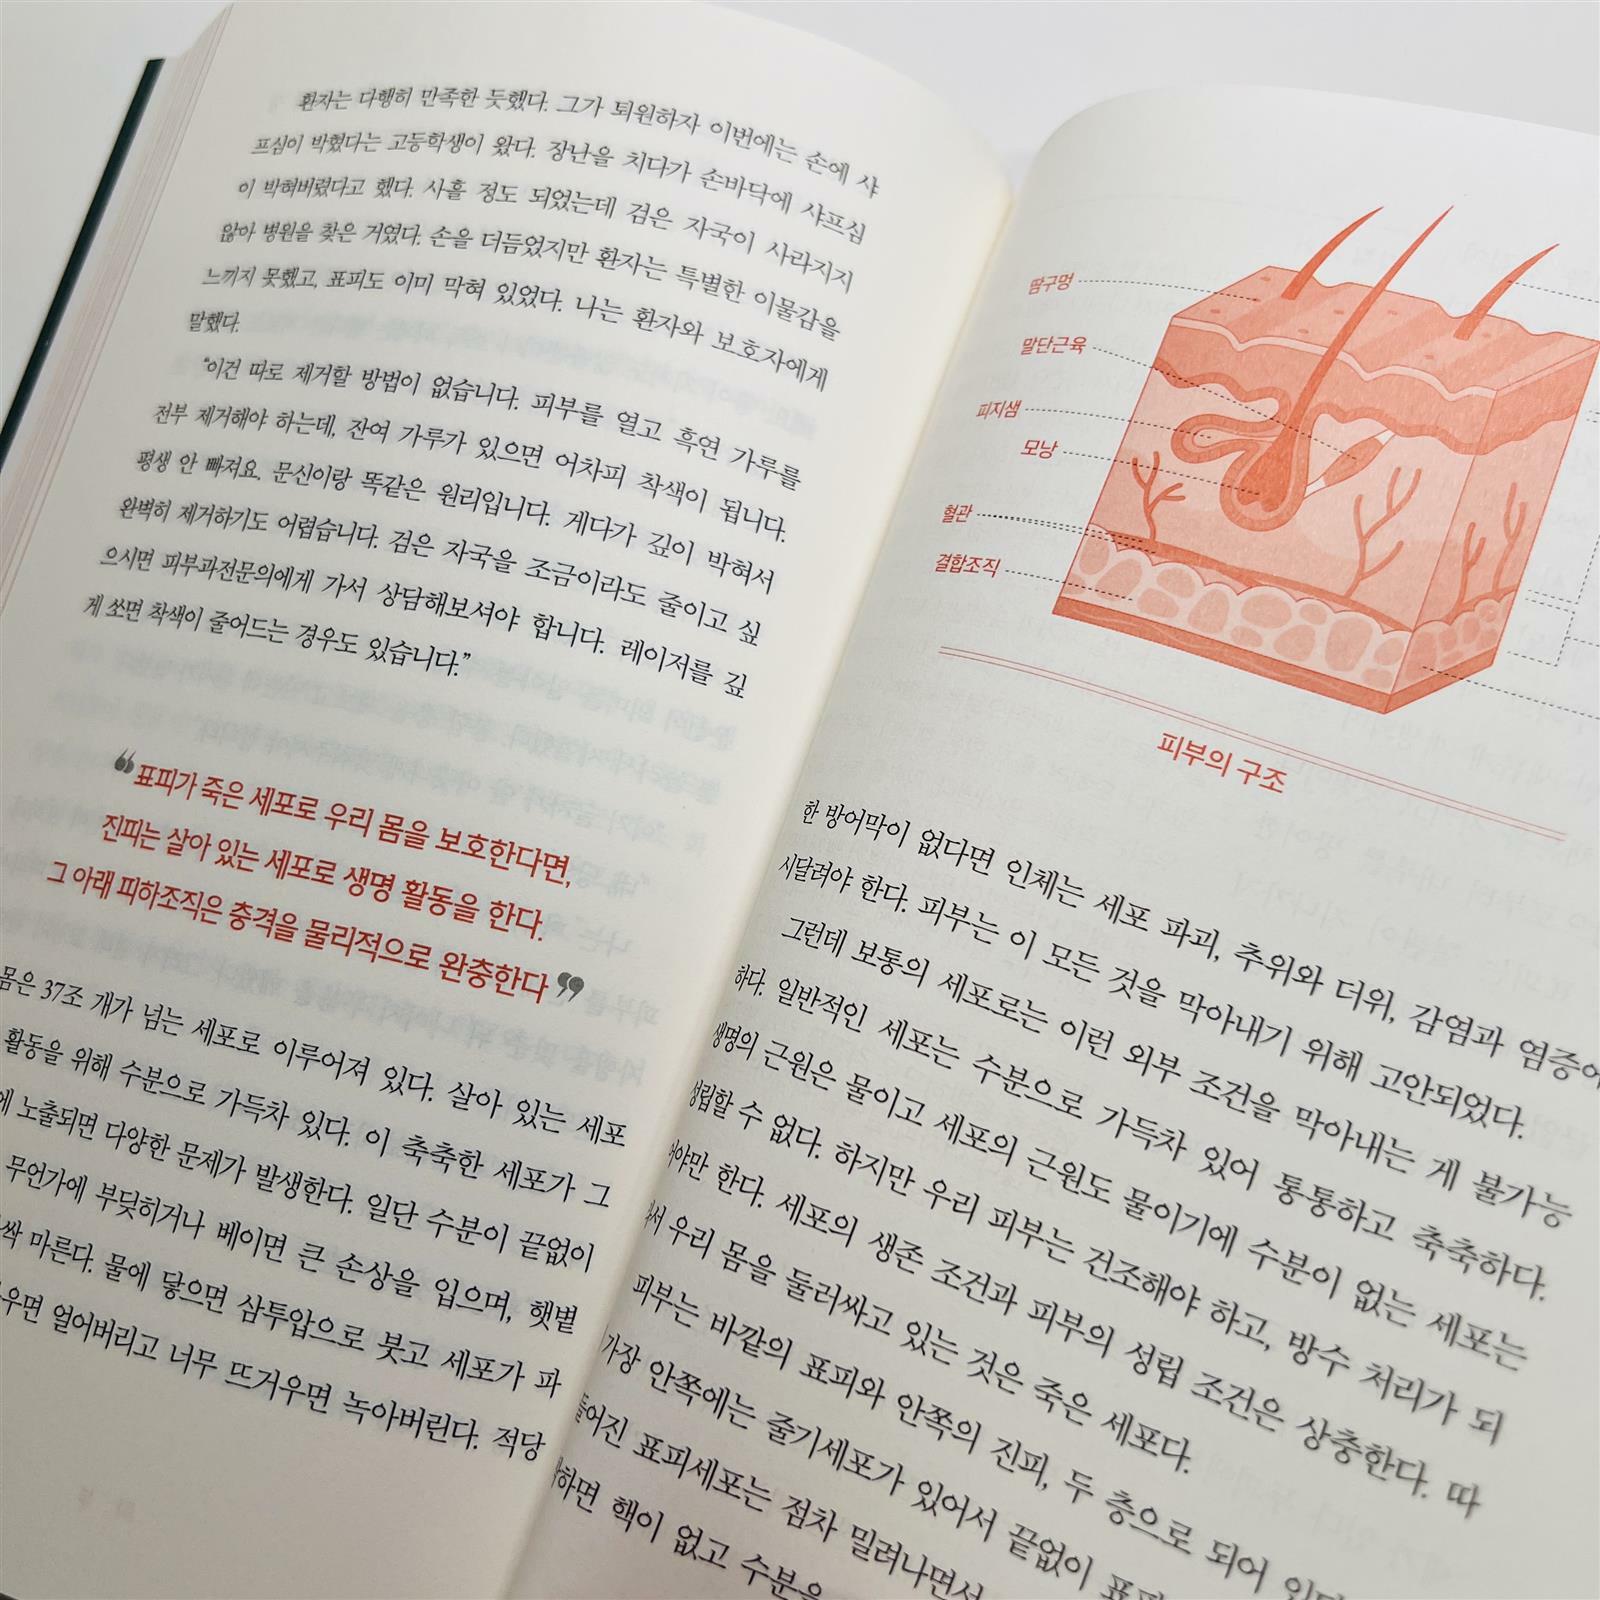 환자는 다행히 만족한 듯했다. 그가 퇴원하자 이번에는 손에 샤
프심이 박혔다는 고등학생이 왔다. 장난을 치다가 손바닥에 샤프심
이 박혀버렸다고 했다. 사흘 정도 되었는데 검은 자국이 사라지지
않아 병원을 찾은 거였다. 손을 더듬었지만 환자는 특별한 이물감을
느끼지 못했고, 표피도 이미 막혀 있었다. 나는 환자와 보호자에게
말했다.
“이건 따로 제거할 방법이 없습니다. 피부를 열고 흑연 가루를
전부 제거해야 하는데, 잔여 가루가 있으면 어차피 착색이 됩니다.
평생 안 빠져요. 문신이랑 똑같은 원리입니다. 게다가 깊이 박혀서
완벽히 제거하기도 어렵습니다. 검은 자국을 조금이라도 줄이고 싶
으시면 피부과전문의에게 가서 상담해보셔야 합니다. 레이저를 깊
게 쏘면 착색이 줄어드는 경우도 있습니다.”
“표피가 죽은 세포로 우리 몸을 보호한다면,
진피는 살아 있는 세포로 생명 활동을 한다.
그 아래 피하조직은 충격을 물리적으로 완충한다”
몸은 37조 개가 넘는 세포로 이루어져 있다. 살아 있는 세포
활동을 위해 수분으로 가득차 있다. 이 축축한 세포가 그
에 노출되면 다양한 문제가 발생한다. 일단 수분이 끝없이
무언가에 부딪히거나 베이면 큰 손상을 입으며, 햇볕
싹 마른다. 물에 닿으면 삼투압으로 붓고 세포가 파
우면 얼어버리고 너무 뜨거우면 녹아버린다. 적당
땀구멍
말단근육
피지샘
모낭
혈관
결합조직
피부의 구조
한 방어막이 없다면 인체는 세포 파괴, 추위와 더위, 감염과 염증에
시달려야 한다. 피부는 이 모든 것을 막아내기 위해 고안되었다.
그런데 보통의 세포로는 이런 외부 조건을 막아내는 게 불가능
하다. 일반적인 세포는 수분으로 가득차 있어 통통하고 축축하다.
생명의 근원은 물이고 세포의 근원도 물이기에 수분이 없는 세포는
성립할 수 없다. 하지만 우리 피부는 건조해야 하고, 방수 처리가 되
어야만 한다. 세포의 생존 조건과 피부의 성립 조건은 상충한다. 따
라서 우리 몸을 둘러싸고 있는 것은 죽은 세포다.
피부는 바깥의 표피와 안쪽의 진피, 두 층으로 되어 있다
가장 안쪽에는 줄기세포가 있어서 끝없이 표피
들어진 표피세포는 점차 밀려나면서
하면 핵이 없고 수분을